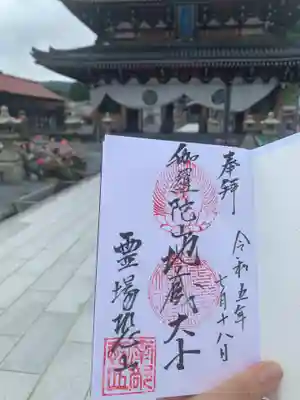 奉拝
令和五年
七月十八日
伽羅陀山地蔵大士
霊場恐山